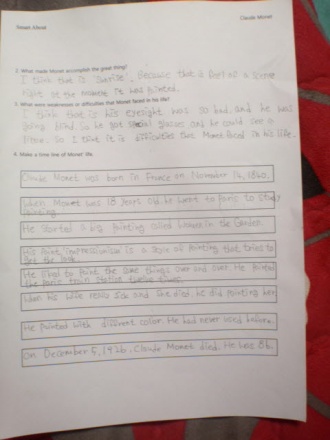 Claude Monet
2. What made Monet accomplish the great thing?
I think that is 'Sunrise', Because that a feel of a scene
right at the moment it was painted.
3. What were weaknesses or difficulties that Monet faced in his life?
I think that is his eyesight was so bad. and he was
going blind. So he got special glasses and he could see a
. So I think it is difficulties that Monet faced in his life.
4. Make a time line of Monet' life.
Claude Monet was born in France on November 14, 1840.
When Monet was 18 years old he went to Paris to study
painting.
He started a big painting called Women in the Garden.
His paint, impressionism is a style of painting that tries to
He liked to paint the same things over and over. He painted
the Paris train station twelve times.
When his wife really sick and she died. he did painting her
He painted with different color. He had never used before.
On December 5, 1926. Claude Monet died. He was 86.